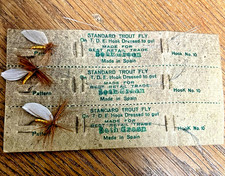 STANDARD TROUT FLY
On T.D.E. Hook Dressed to gut
MADE FOR
BEST RETAIL TRADE
Made in Spain
Pattern
Hook No. 10
STANDARD TROUT FLY
On T.D.E. Hook Dressed to gut
MADE FOR
BEST RETAIL TRADE
Made in Spain
Pattern
Hook No. 10
STANDARD TROUT FLY
On T.D.E. Hook Dressed to gut
MADE FOR
BEST RETAIL TRADE
Seth Green
Made in Spain
Hook No. 10